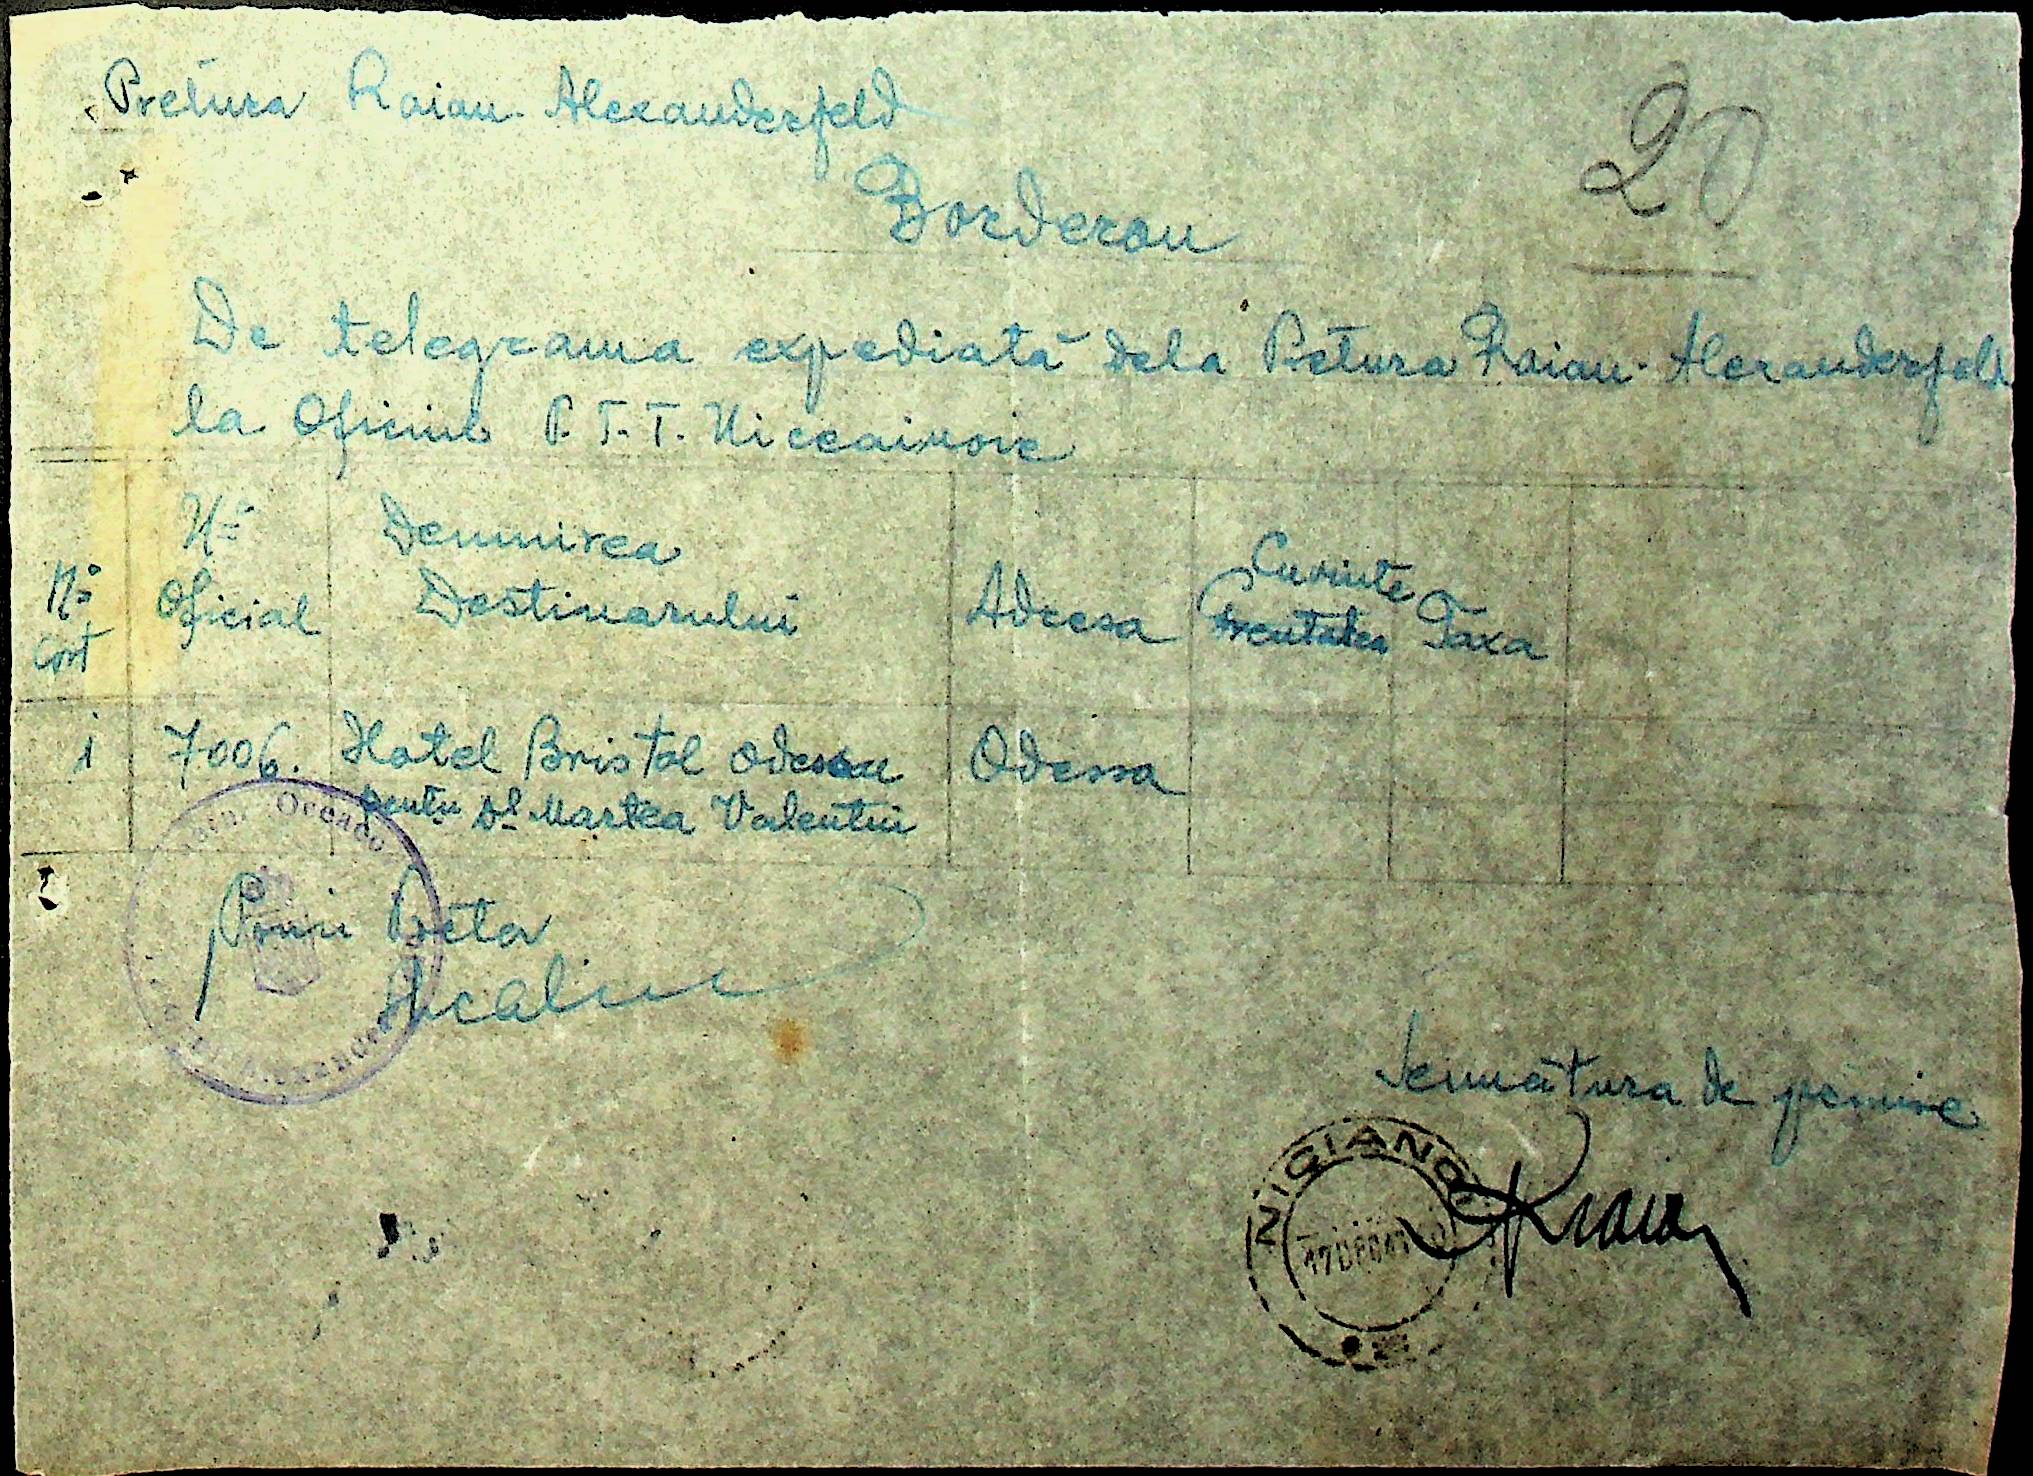 Pretura Raion. Alexanderfeld
20
Borderou
De telegrama expediată dela Pretura Raion. Alexanderfeld
la Oficiul P. T. T. Niceaienvie
No Cort
No Oficial
Denumirea Destinarului
Adresa
Cuvinte
Taxa
1 7006. Hotel Bristol Odessa Odessa
pentru Dl Martea Valentin
Prim Pretor
Semnătura de primire
NICIANO
17 DEC 41